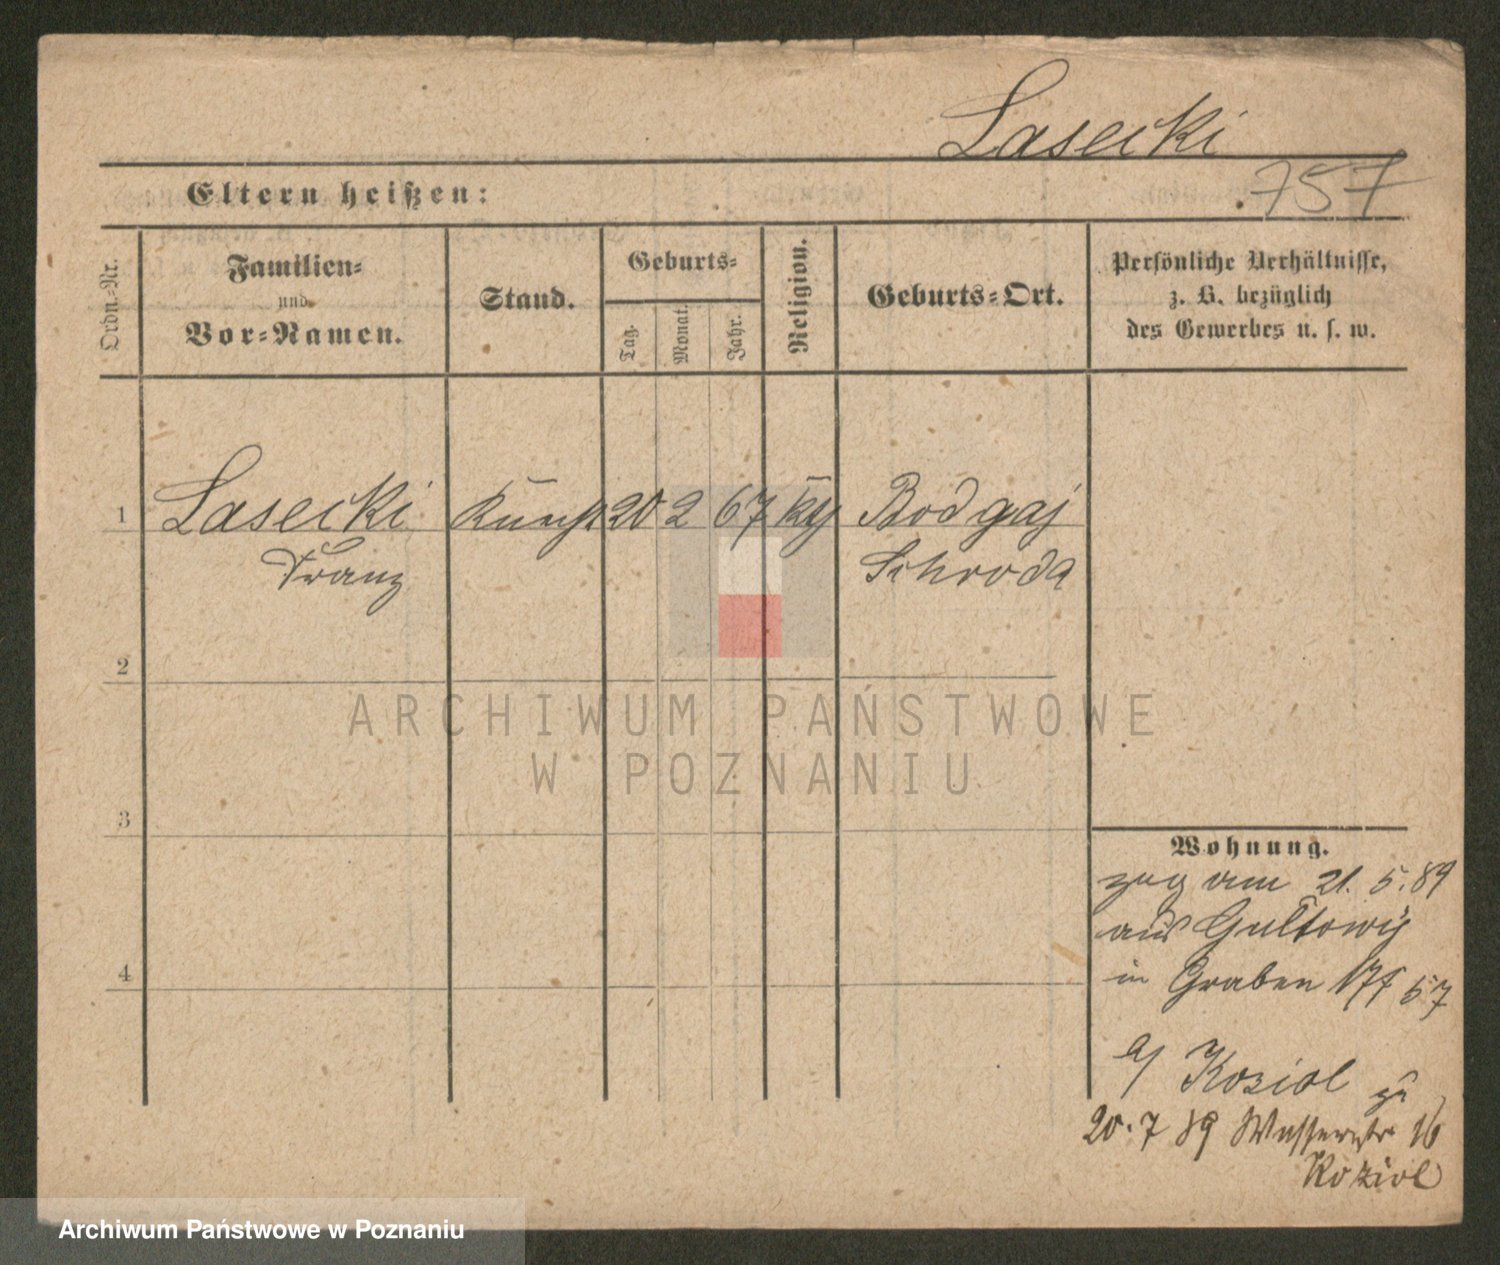 Lasecki
Eltern heißen:
757
Ordn.-Nr.
Familien-
und
Vor-Namen.
Stand.
Geburts-
Tag.
Monat.
Jahr.
Religion.
Geburts-Ort.
Persönliche Verhältnisse,
z. B. bezüglich
des Gewerbes u. s. w.
1 Lasecki Knecht 20 2 67 Bodgaj
Franz Schroda
2
3
4
Wohnung.
zug am 21. 5. 89
aus Gultowy
in Graben
b/ Koziol zu
20. 7 89 Wasserstr 16
Koziol
ARCHIWUM PAŃSTWOWE
W POZNANIU
Archiwum Państwowe w Poznaniu